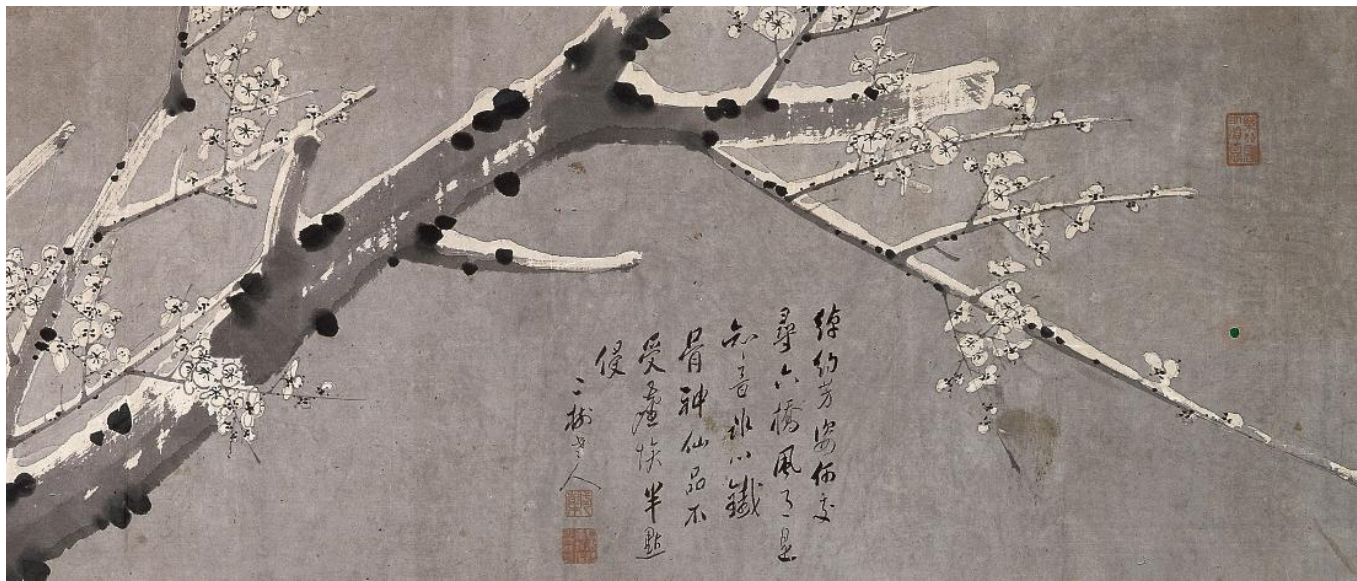 綽約芳姿何處
尋六橋風月是
知音冰心鐵
骨神仙品不
受塵埃半點
侵
二樹老人